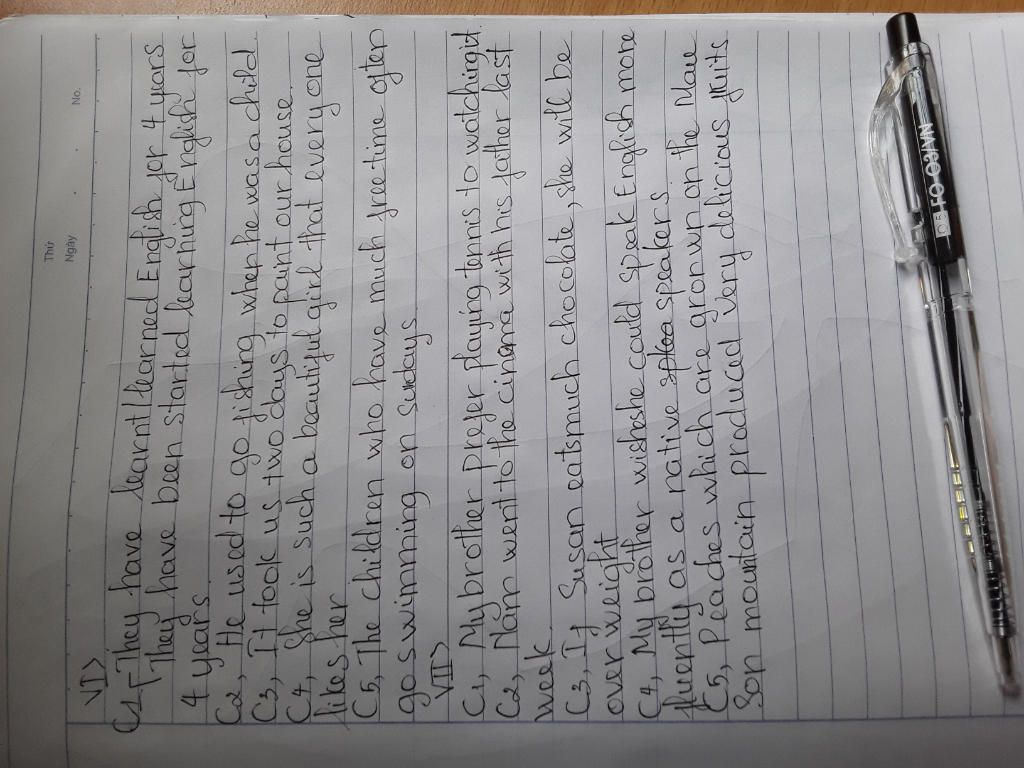 Thứ
Ngày
No.
VI>
C1 They have learnt/learned English for 4 years
They have been started learning English for
4 years
C2, He used to go fishing when he was a child
C3, It took us two days to paint our house
C4, She is such a beautiful girl that every one
likes her
C5, The children who have much freetime often
go swimming on sudays
VII>
C1, My brother prefer playing tennis to watching it
C2, Nam went to the cinema with his father last
week
C3, If Susan eats much chocolate, she will be
over weight
C4, My brother wishes he could speak English more
fluently as a native speakers
C5, Peaches which are gronwn on the Mau
Son mountain producad very delicious fruits
0.5 FO-GELB